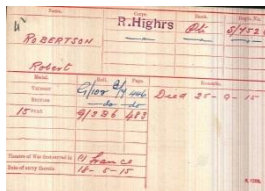 Name. Corps. Rank. Regtl. No.
ROBERTSON R. Highrs Pte
Robert
Medal. Roll. Page. Remarks.
VICTORY
BRITISH do do Died 25-9-15
15 STAR 483
Theatre of War first served in (1) France
Date of entry therein 18-5-15